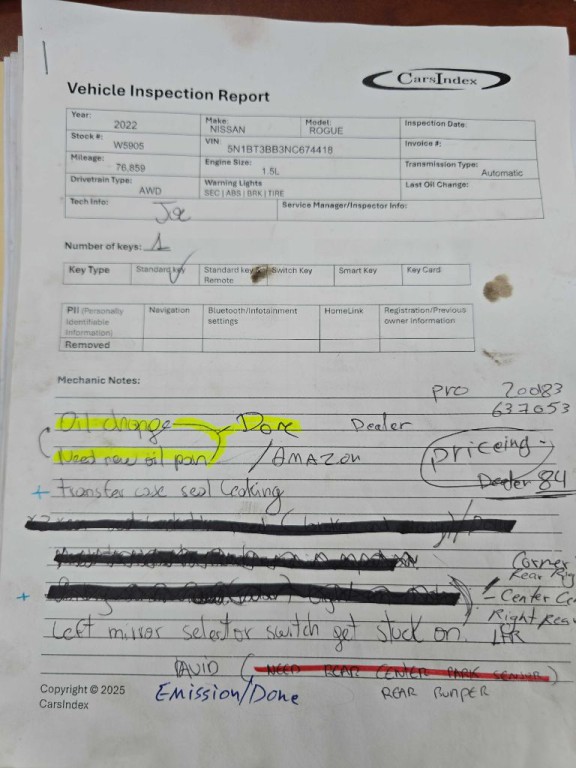 CarsIndex
Vehicle Inspection Report
Year: 2022 Make: NISSAN Model: ROGUE Inspection Date:
Stock #: W5905 VIN: 5N1BT3BB3NC674418 Invoice #:
Mileage: 76,859 Engine Size: 1.5L Transmission Type: Automatic
Drivetrain Type: AWD Warning Lights SEC | ABS | BRK | TIRE Last Oil Change:
Tech Info: Joe Service Manager/Inspector Info:
Number of keys: 1
Key Type Standard key Standard key Remote Switch Key Smart Key Key Card
PII (Personally Identifiable Information) Navigation Bluetooth/Infotainment settings HomeLink Registration/Previous owner information
Removed
Mechanic Notes:
PRO 20083
637053
Oil change Done Dealer
Need new oil pan / AMAZON
priceing
+ transfer case seal leaking
Dealer 84
Corner
Rear Rig
+ - Center Ce
Right Rear
Left mirror selector switch get stuck on.
DAVID (NEED REAR CENTER PARK SENSOR)
Emission/Done REAR BUMPER
Copyright © 2025
CarsIndex